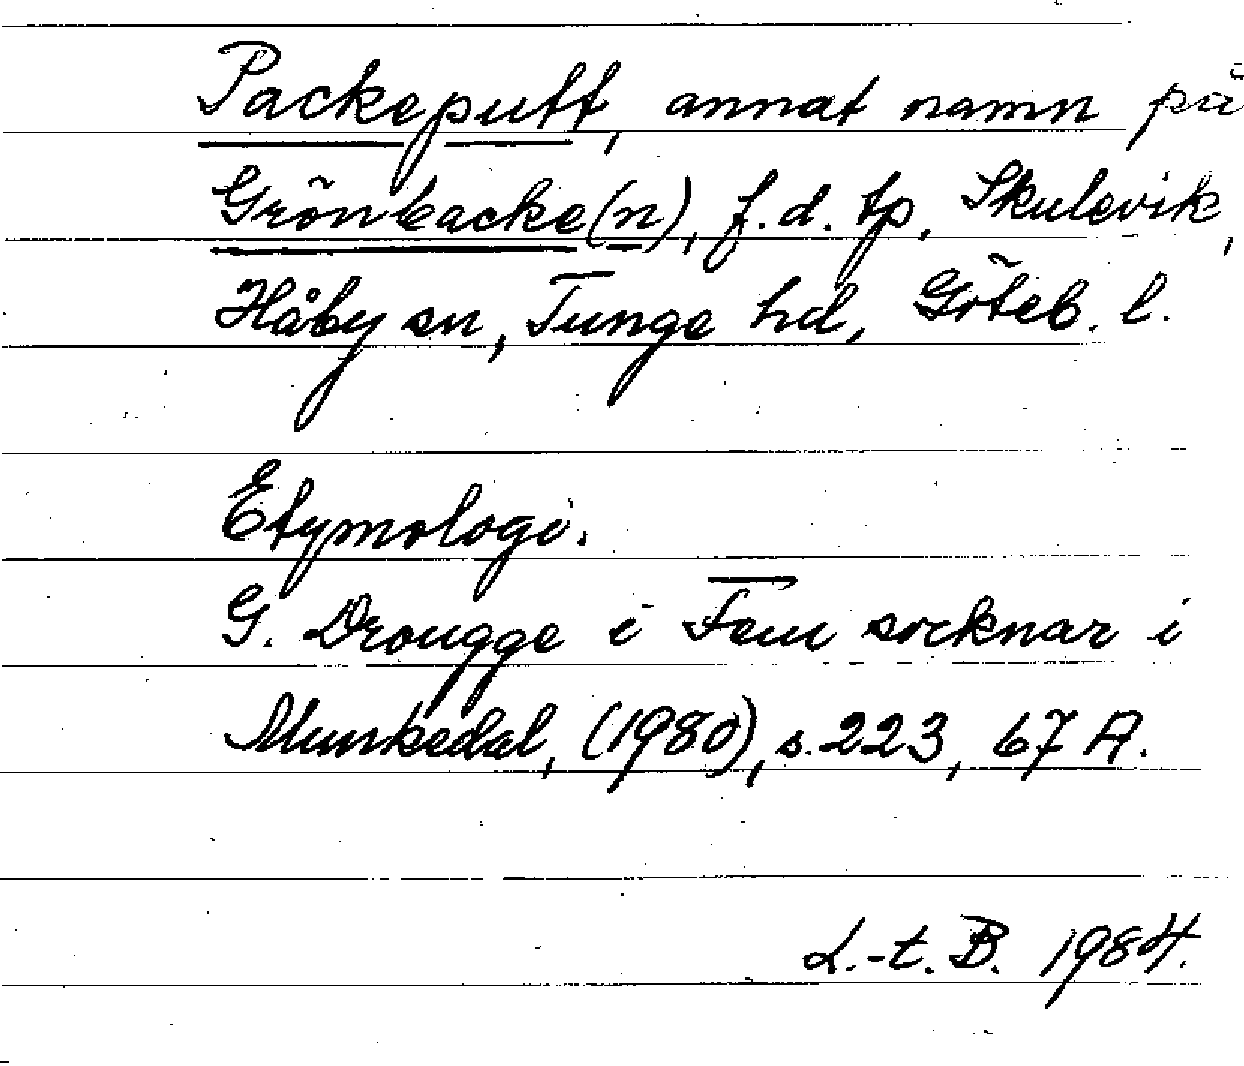 Packeputt, annat namn på
Grönbacke(n), f.d. tp, Skulevik,
Håby sn, Tunge hd, Göteb. l.
Etymologi.
G. Drougge i Fem socknar i
Munkedal, (1980), s. 223, 67 A.
L.-t. B. 1984.